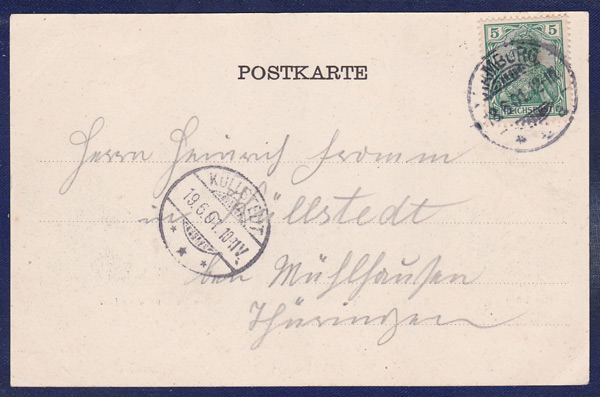 5 5
REICHSPOST
HAMBURG
POSTKARTE
Herrn Heinrich Fromm
in Küllstedt
KÜLLSTEDT
19.6.01. 10-11V.
bei Mühlhausen
Thüringen